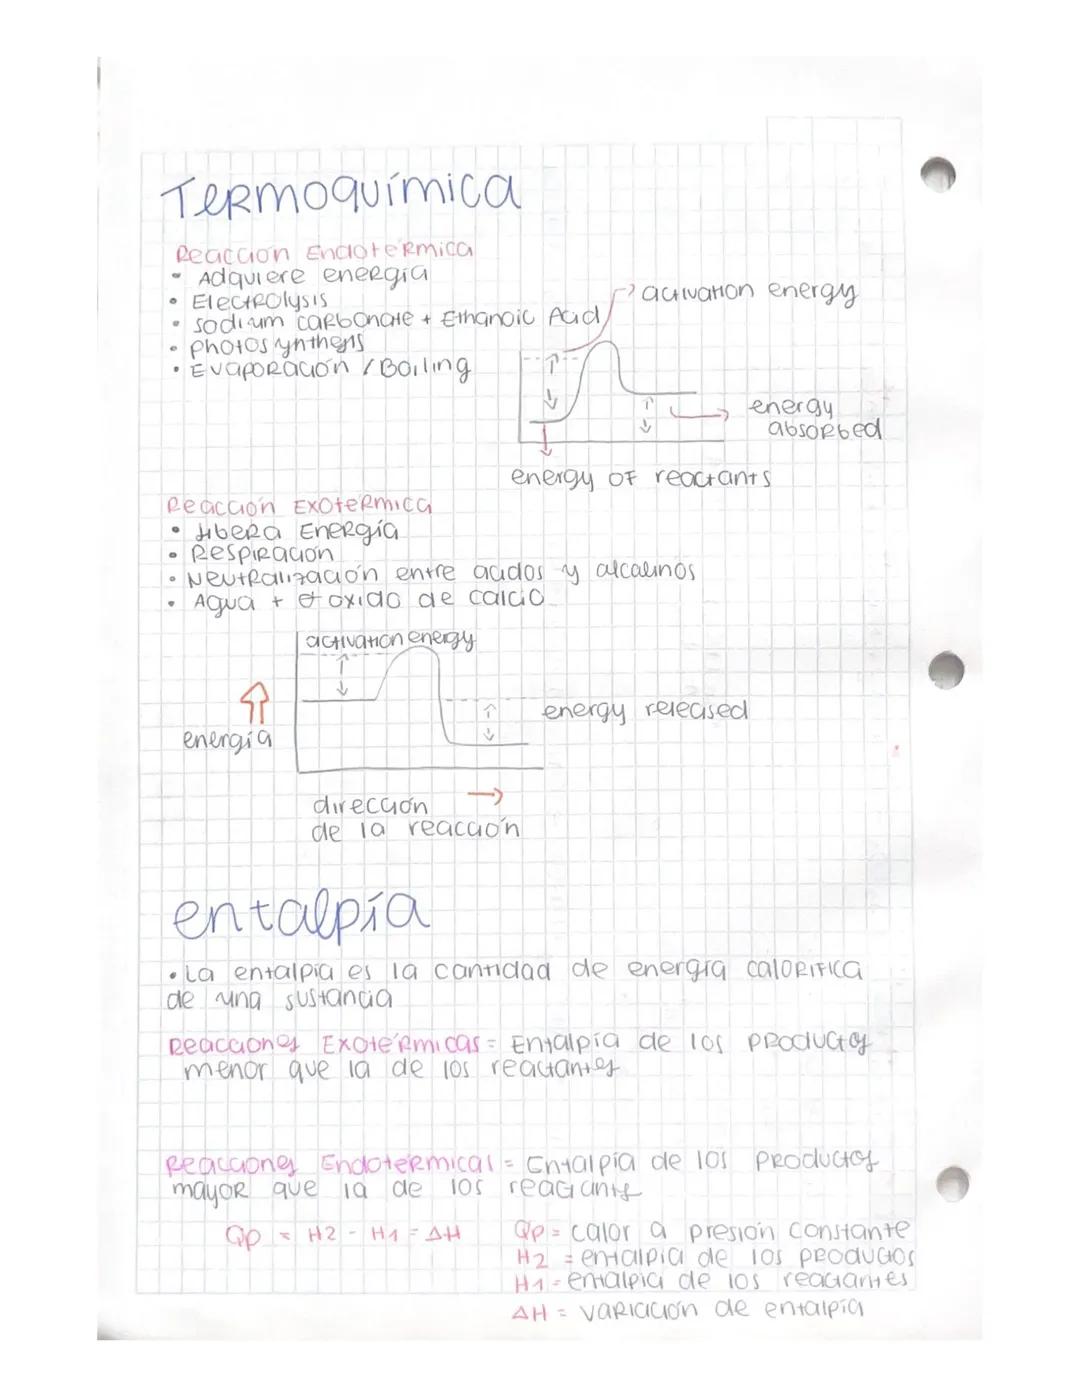 Termoquímica
Reacción Endotérmica
• Adquiere energía
• Electrolysis
• Sodium carbonate + Ethanoic Acid
• photosynthesis
• Evaporación / Boiling
activation energy
energy absorbed
energy of reactants
Reacción Exotérmica
• Libera Energía
• Respiración
• Neutralización entre acidos y alcalinos
• Agua + oxido de calcio
activation energy
energy released
energía
dirección
de la reacción
entalpía
• La entalpia es la cantidad de energía calorifica
de una sustancia
Reacciones Exotérmicas = Entalpía de los productos
menor que la de los reactantes
Reacciones Endotermicas = Entalpia de los productos
mayor que la de los reactants
Qp = H2 - H1 = ΔH
Qp = calor a presión constante
H2 = entalpia de los productos
H1 = entalpia de los reactantes
ΔH = variación de entalpía